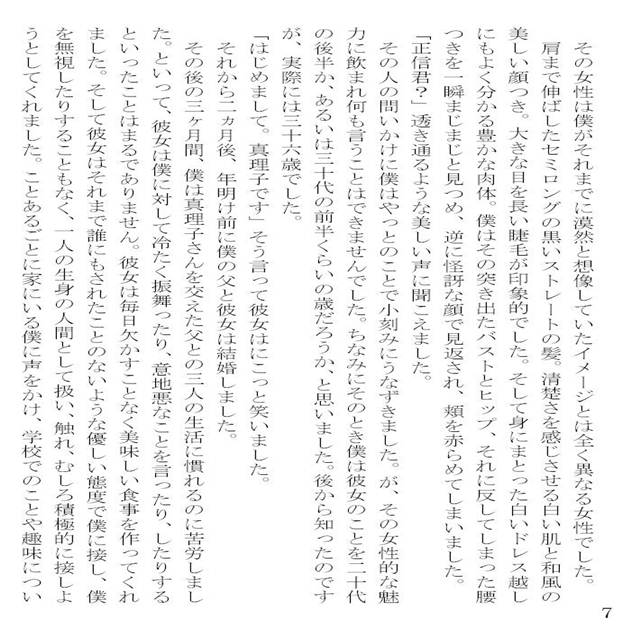 その女性は僕がそれまでに漠然と想像していたイメージとは全く異なる女性でした。
肩まで伸ばしたセミロングの黒いストレートの髪。清楚さを感じさせる白い肌と和風の
美しい顔つき。大きな目を長い睫毛が印象的でした。そして身にまとった白いドレス越し
にもよく分かる豊かな肉体。僕はその突き出たバストとヒップ、それに反してしまった腰
つきを一瞬まじまじと見つめ、逆に怪訝な顔で見返され、頬を赤らめてしまいました。
「正信君？」透き通るような美しい声に聞こえました。
その人の問いかけに僕はやっとのことで小刻みにうなずきました。が、その女性的な魅
力に飲まれ何も言うことはできませんでした。ちなみにそのとき僕は彼女のことを二十代
の後半か、あるいは三十代の前半くらいの歳だろうか、と思いました。後から知ったのです
が、実際には三十六歳でした。
「はじめまして。真理子です」そう言って彼女はにこっと笑いました。
それから二ヵ月後、年明け前に僕の父と彼女は結婚しました。
その後の三ヶ月間、僕は真理子さんを交えた父との三人の生活に慣れるのに苦労しまし
た。といって、彼女は僕に対して冷たく振舞ったり、意地悪なことを言ったり、したりする
といったことはまるでありません。彼女は毎日欠かすことなく美味しい食事を作ってくれ
ました。そして彼女はそれまで誰にもされたことのないような優しい態度で僕に接し、僕
を無視したりすることもなく、一人の生身の人間として扱い、触れ、むしろ積極的に接しよ
うとしてくれました。ことあるごとに家にいる僕に声をかけ、学校でのことや趣味につい
7